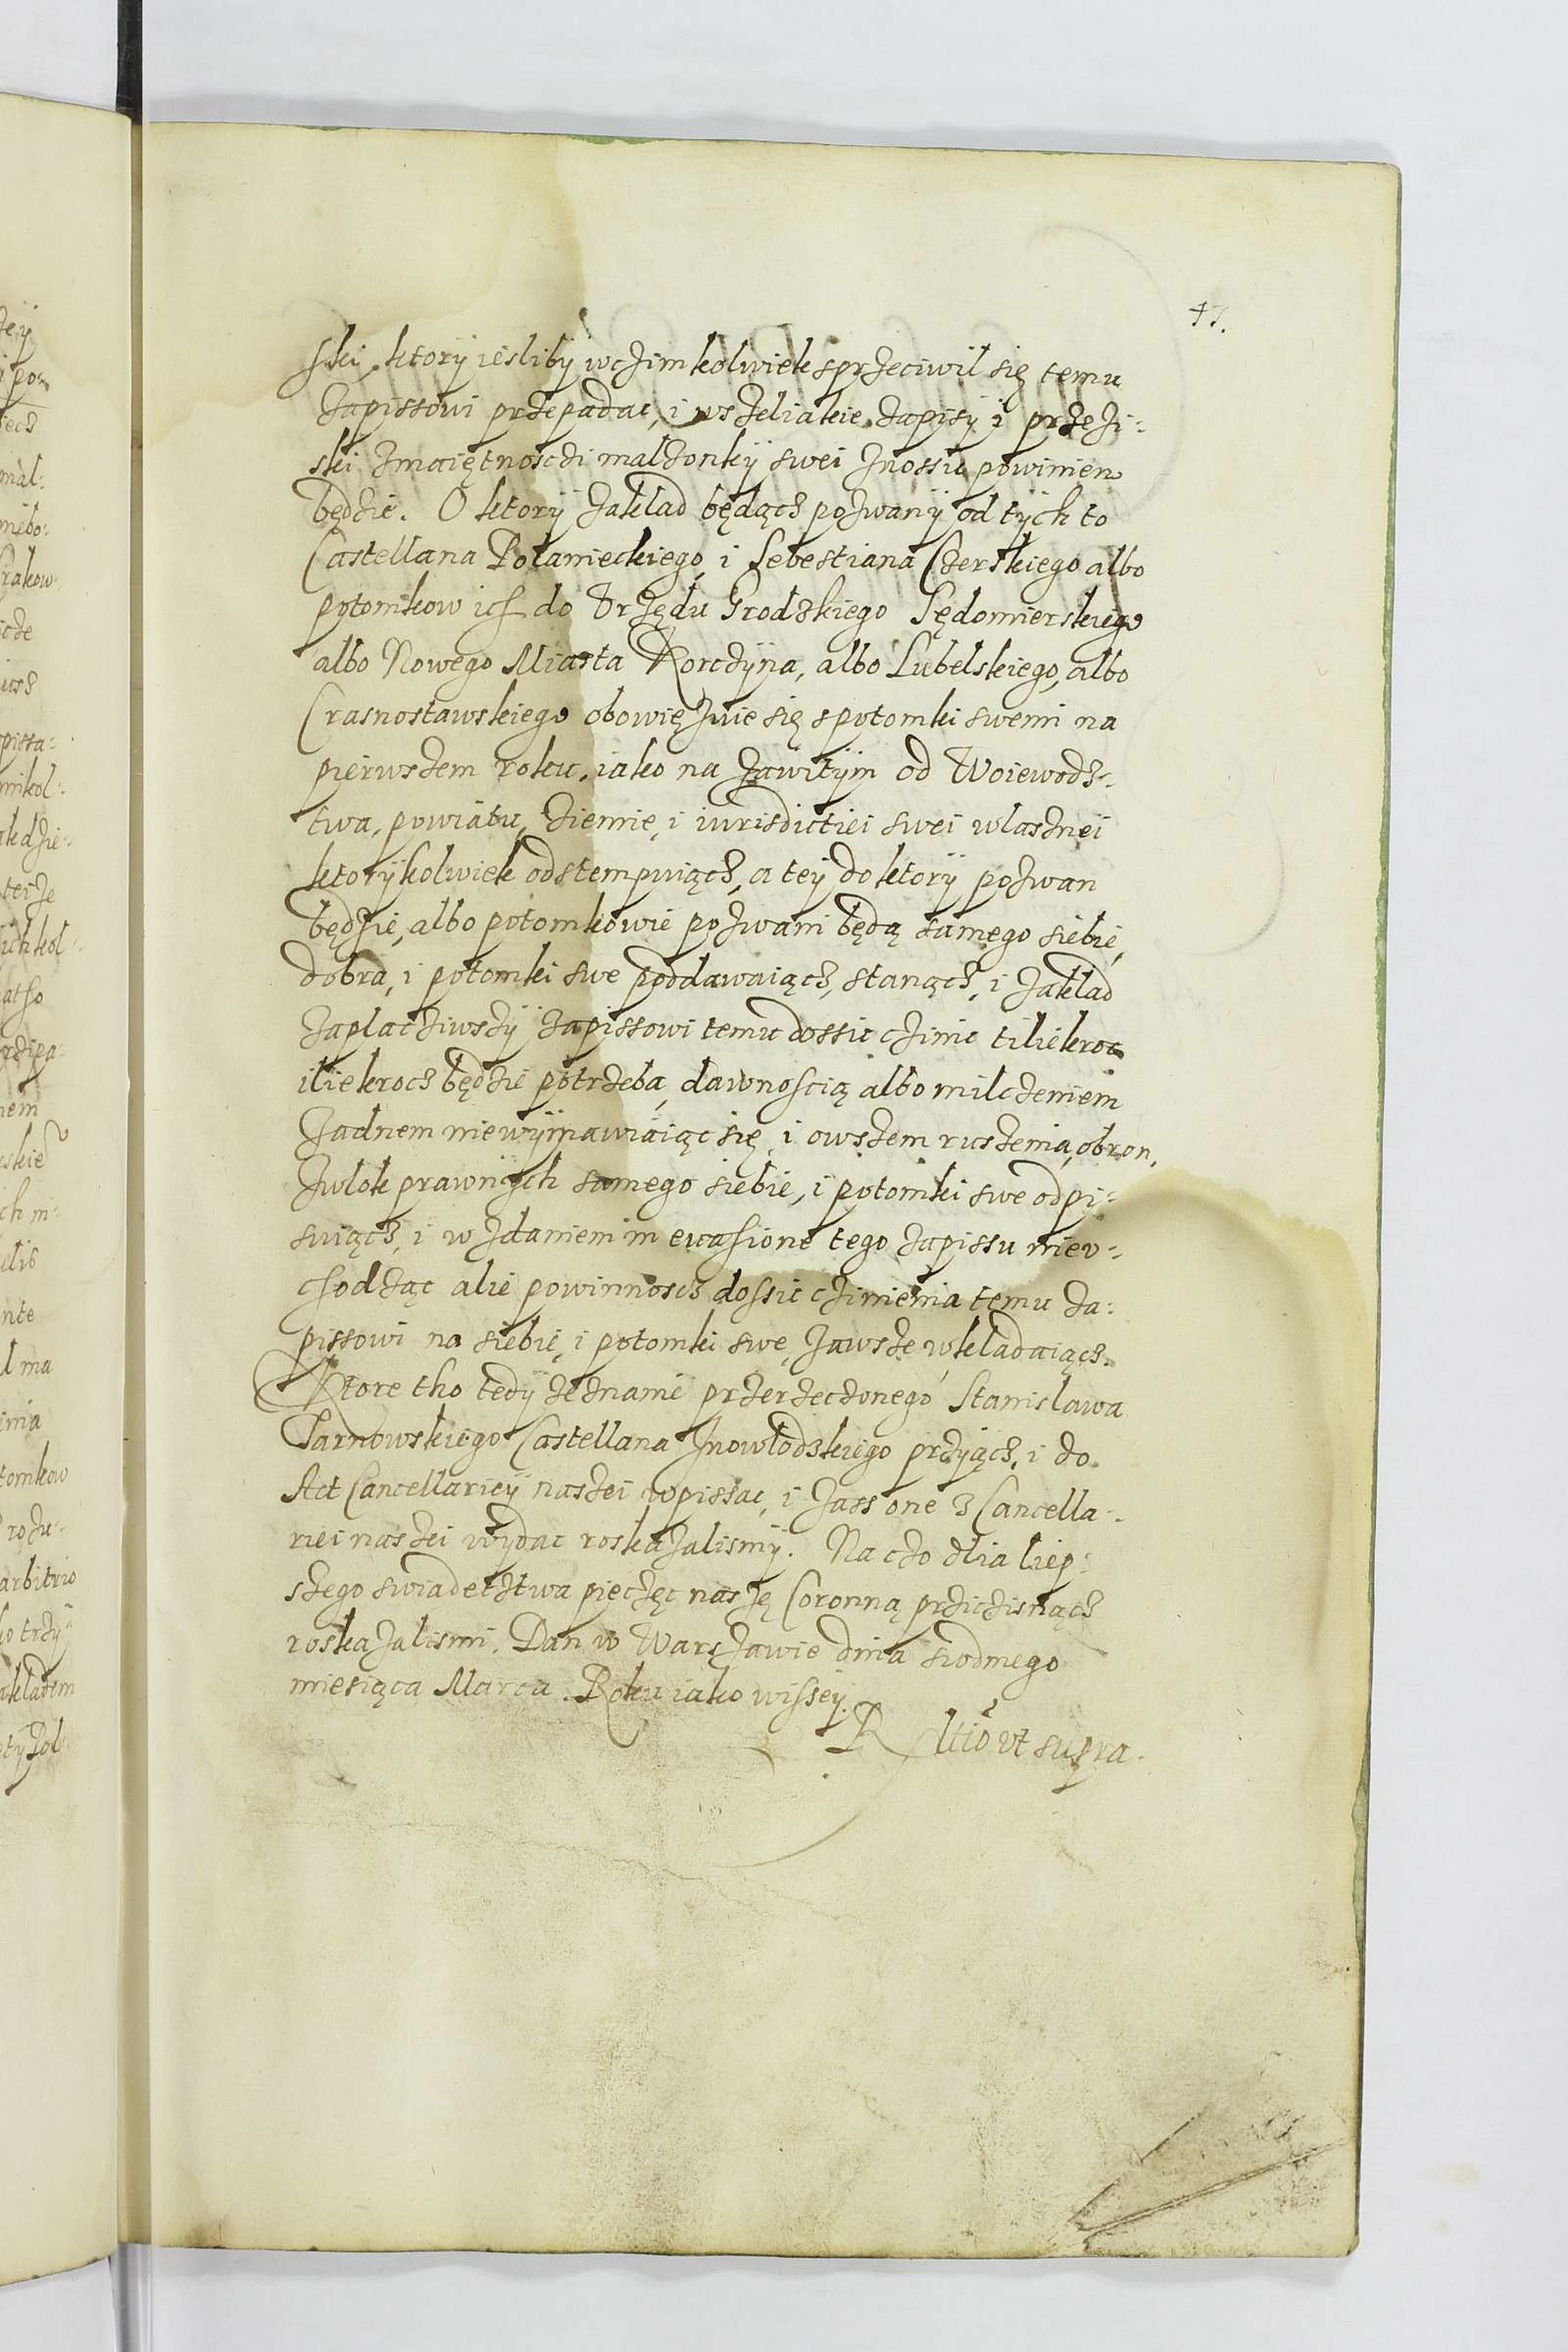 47.
ski, ktory iesliby wczimkolwiek sprzeciwil się temu
zapissowi przepadac, i wszeliakie zapisy i przezi-
ski z maiętnosczi malzonky swei znossic powinien
będzie. O ktory zaklad będącz pozwany od tych to
Castellana Polanieckiego, i Sebestiana Czerskiego albo
potomkow ich do Vrzędu Grodzkiego Sędomierskiego
albo Nowego Miasta Korczyna, albo Lubelskiego, albo
Crasnostawskiego obowięzuie się s potomki swemi na
pierwszem roku, iako na zawitym od Woiewodz-
twa, powiatu, ziemie, i iurisdictiei swei wlasznei
ktorykolwiek odstempuiącz, a tey do ktory pozwan
będzie, albo potomkowie pozwani będą samego siebie,
dobra, i potomki swe poddawaiącz, stanącz, i zaklad
zaplacziwszy zapissowi temu dossic czinic tiliekroc
iliekrocz będzie potrzeba, dawnoscią albo milczeniem
zadnem niewymawiaiąc się, i owszem ruszenia, obron,
zwlok prawnych samego siebie, i potomki swe odpi-
suiącz, i w zdaniem in euasione tego zapissu niev-
chodząc alie powinnoscz dossic czinienia temu za-
pissowi na siebie, i potomki swe, zawsze wkladaiącz.
Ktore tho tedy zeznanie przerzeczonego Stanislawa
Tarnowskiego Castellana Inowlodzkiego przyącz, i do
Act Cancellariey naszei wpissac, i zass one z Cancella-
riei naszei wydac roskazalismy. Na czo dlia liep-
szego swiadecztwa pieczęc naszę Coronną prziczisnącz
roskazalismi. Dan w Warszawie dnia siodmego
miesiąca Marca. Roku iako wissey.
R ltio vt supra.